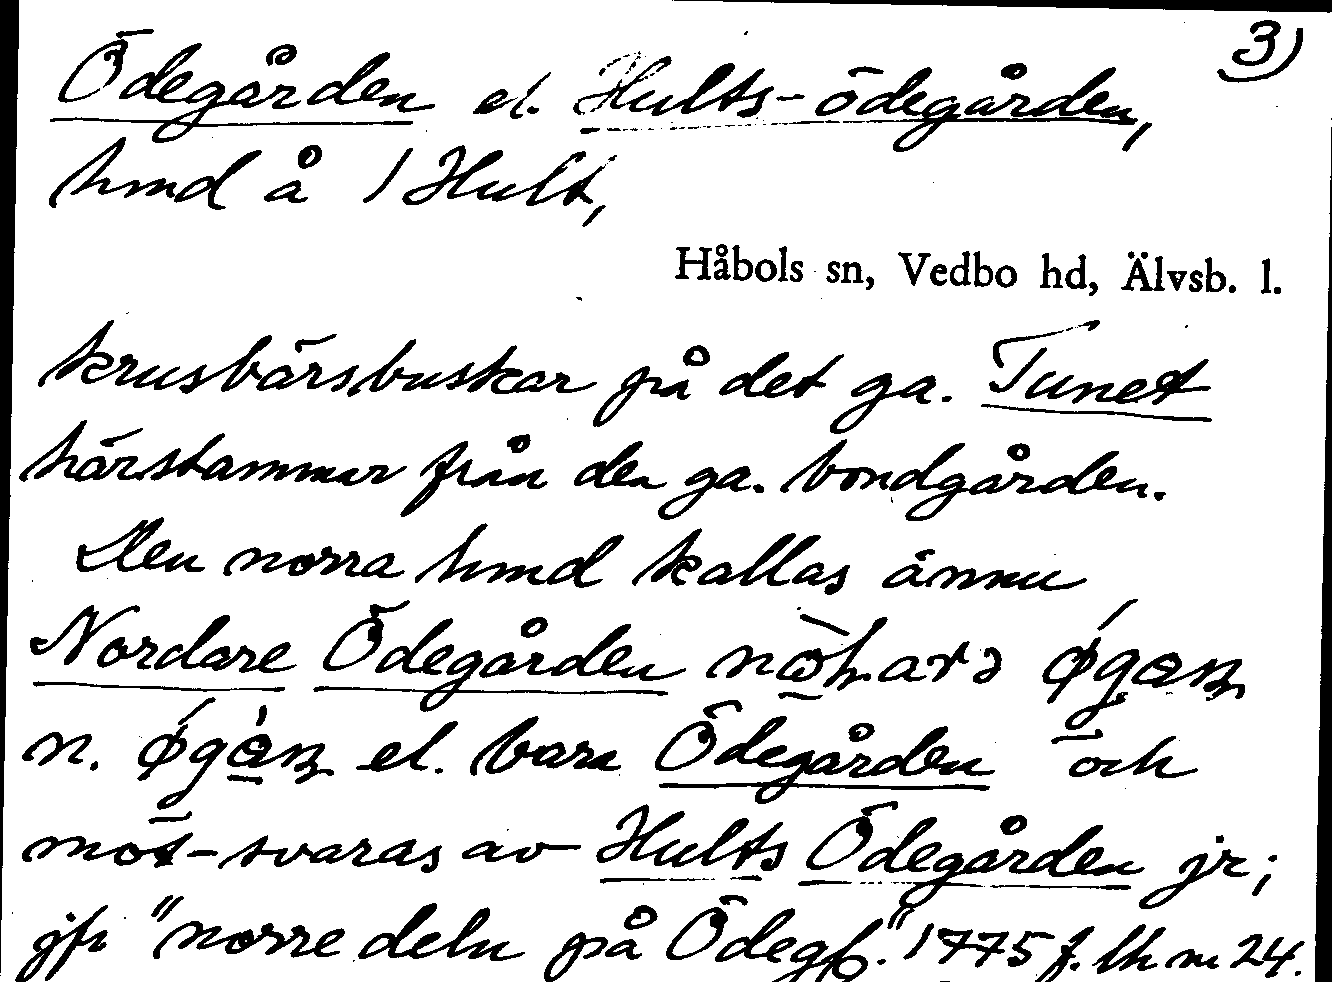 3)
Ödegården el. Hults-ödegården,
hmd å 1 Hult,
Håbols sn, Vedbo hd, Älvsb. l.
krusbärsbuskar på det ga. Tunet
härstammar från den ga. bondgården.
Den norra hmd kallas ännu
Nordare Ödegården
n. el. bara Ödegården och
mot-svaras av Hults Ödegården jr;
jfr "norre deln på Ödegn." 1775 f. lhm 24.